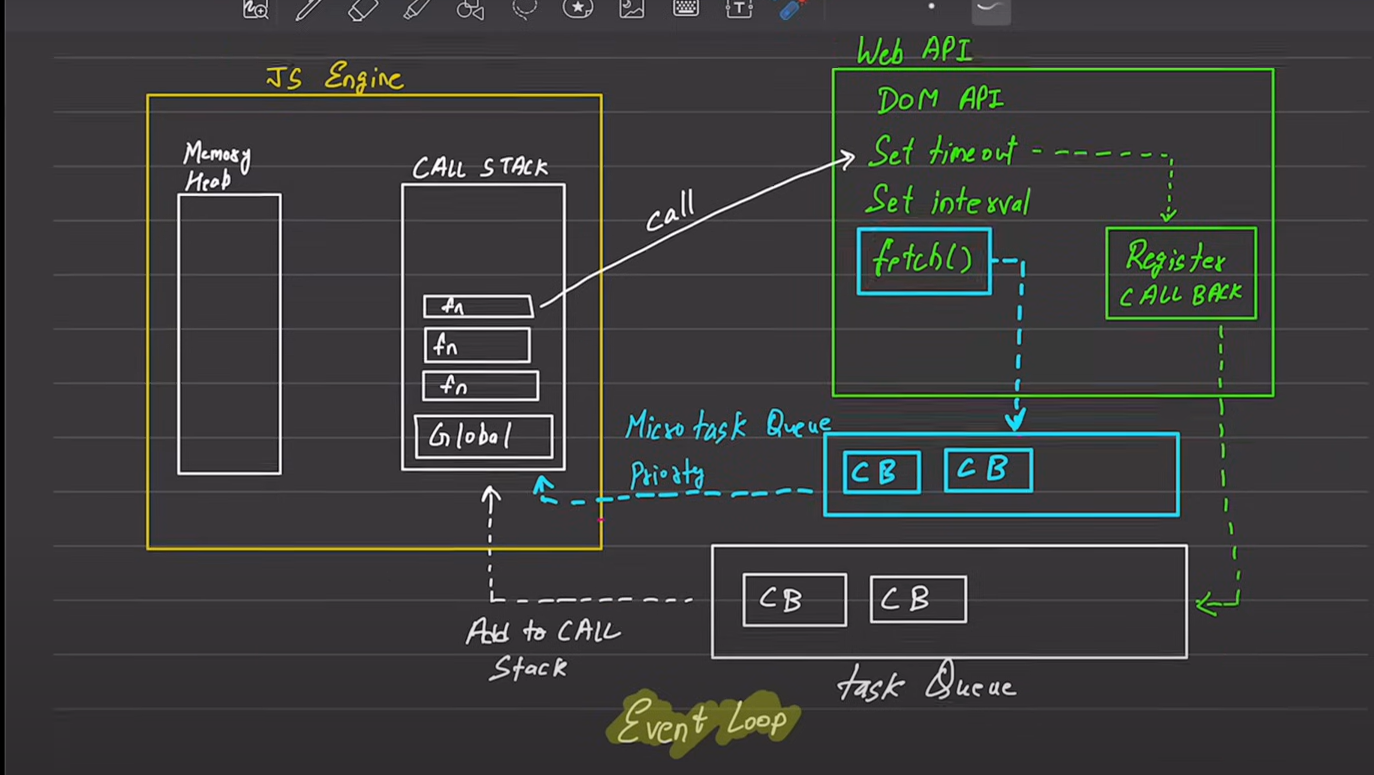 JS Engine
Memory
Heap
CALL STACK
fn
fn
fn
Global
call
Web API
DOM API
Set timeout
Set interval
fetch()
Register
CALL BACK
Microtask Queue
Priorty
CB
CB
CB
CB
Add to CALL
Stack
task Queue
Event Loop